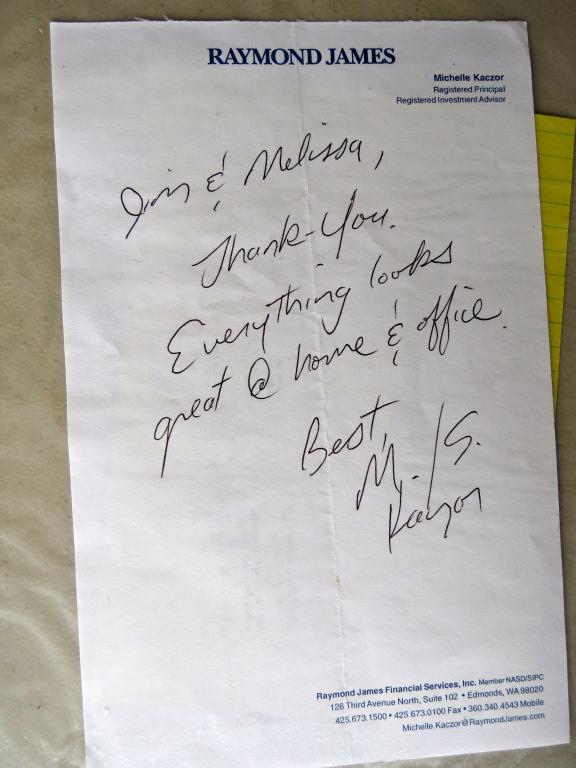 RAYMOND JAMES
Michelle Kaczor
Registered Principal
Registered Investment Advisor
Jim & Melissa,
Thank-You.
Everything looks
great @ home & office.
Best,
M. / S.
Kaczor
Raymond James Financial Services, Inc. Member NASD/SIPC
126 Third Avenue North, Suite 102 • Edmonds, WA 98020
425.673.1500 • 425.673.0100 Fax • 360.340.4543 Mobile
Michelle.Kaczor@RaymondJames.com